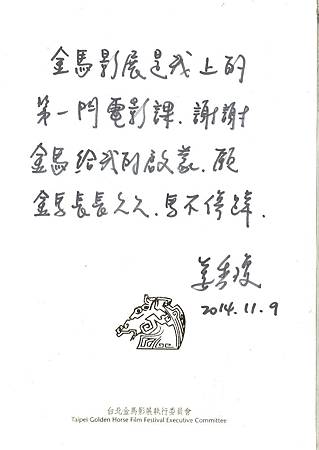 金馬影展是我上的
第一門電影課．謝謝
金馬給我的啟蒙．願
金馬長長久久．馬不停蹄．
姜秀瓊
2014.11.9
台北金馬影展執行委員會
Taipei Golden Horse Film Festival Executive Committee